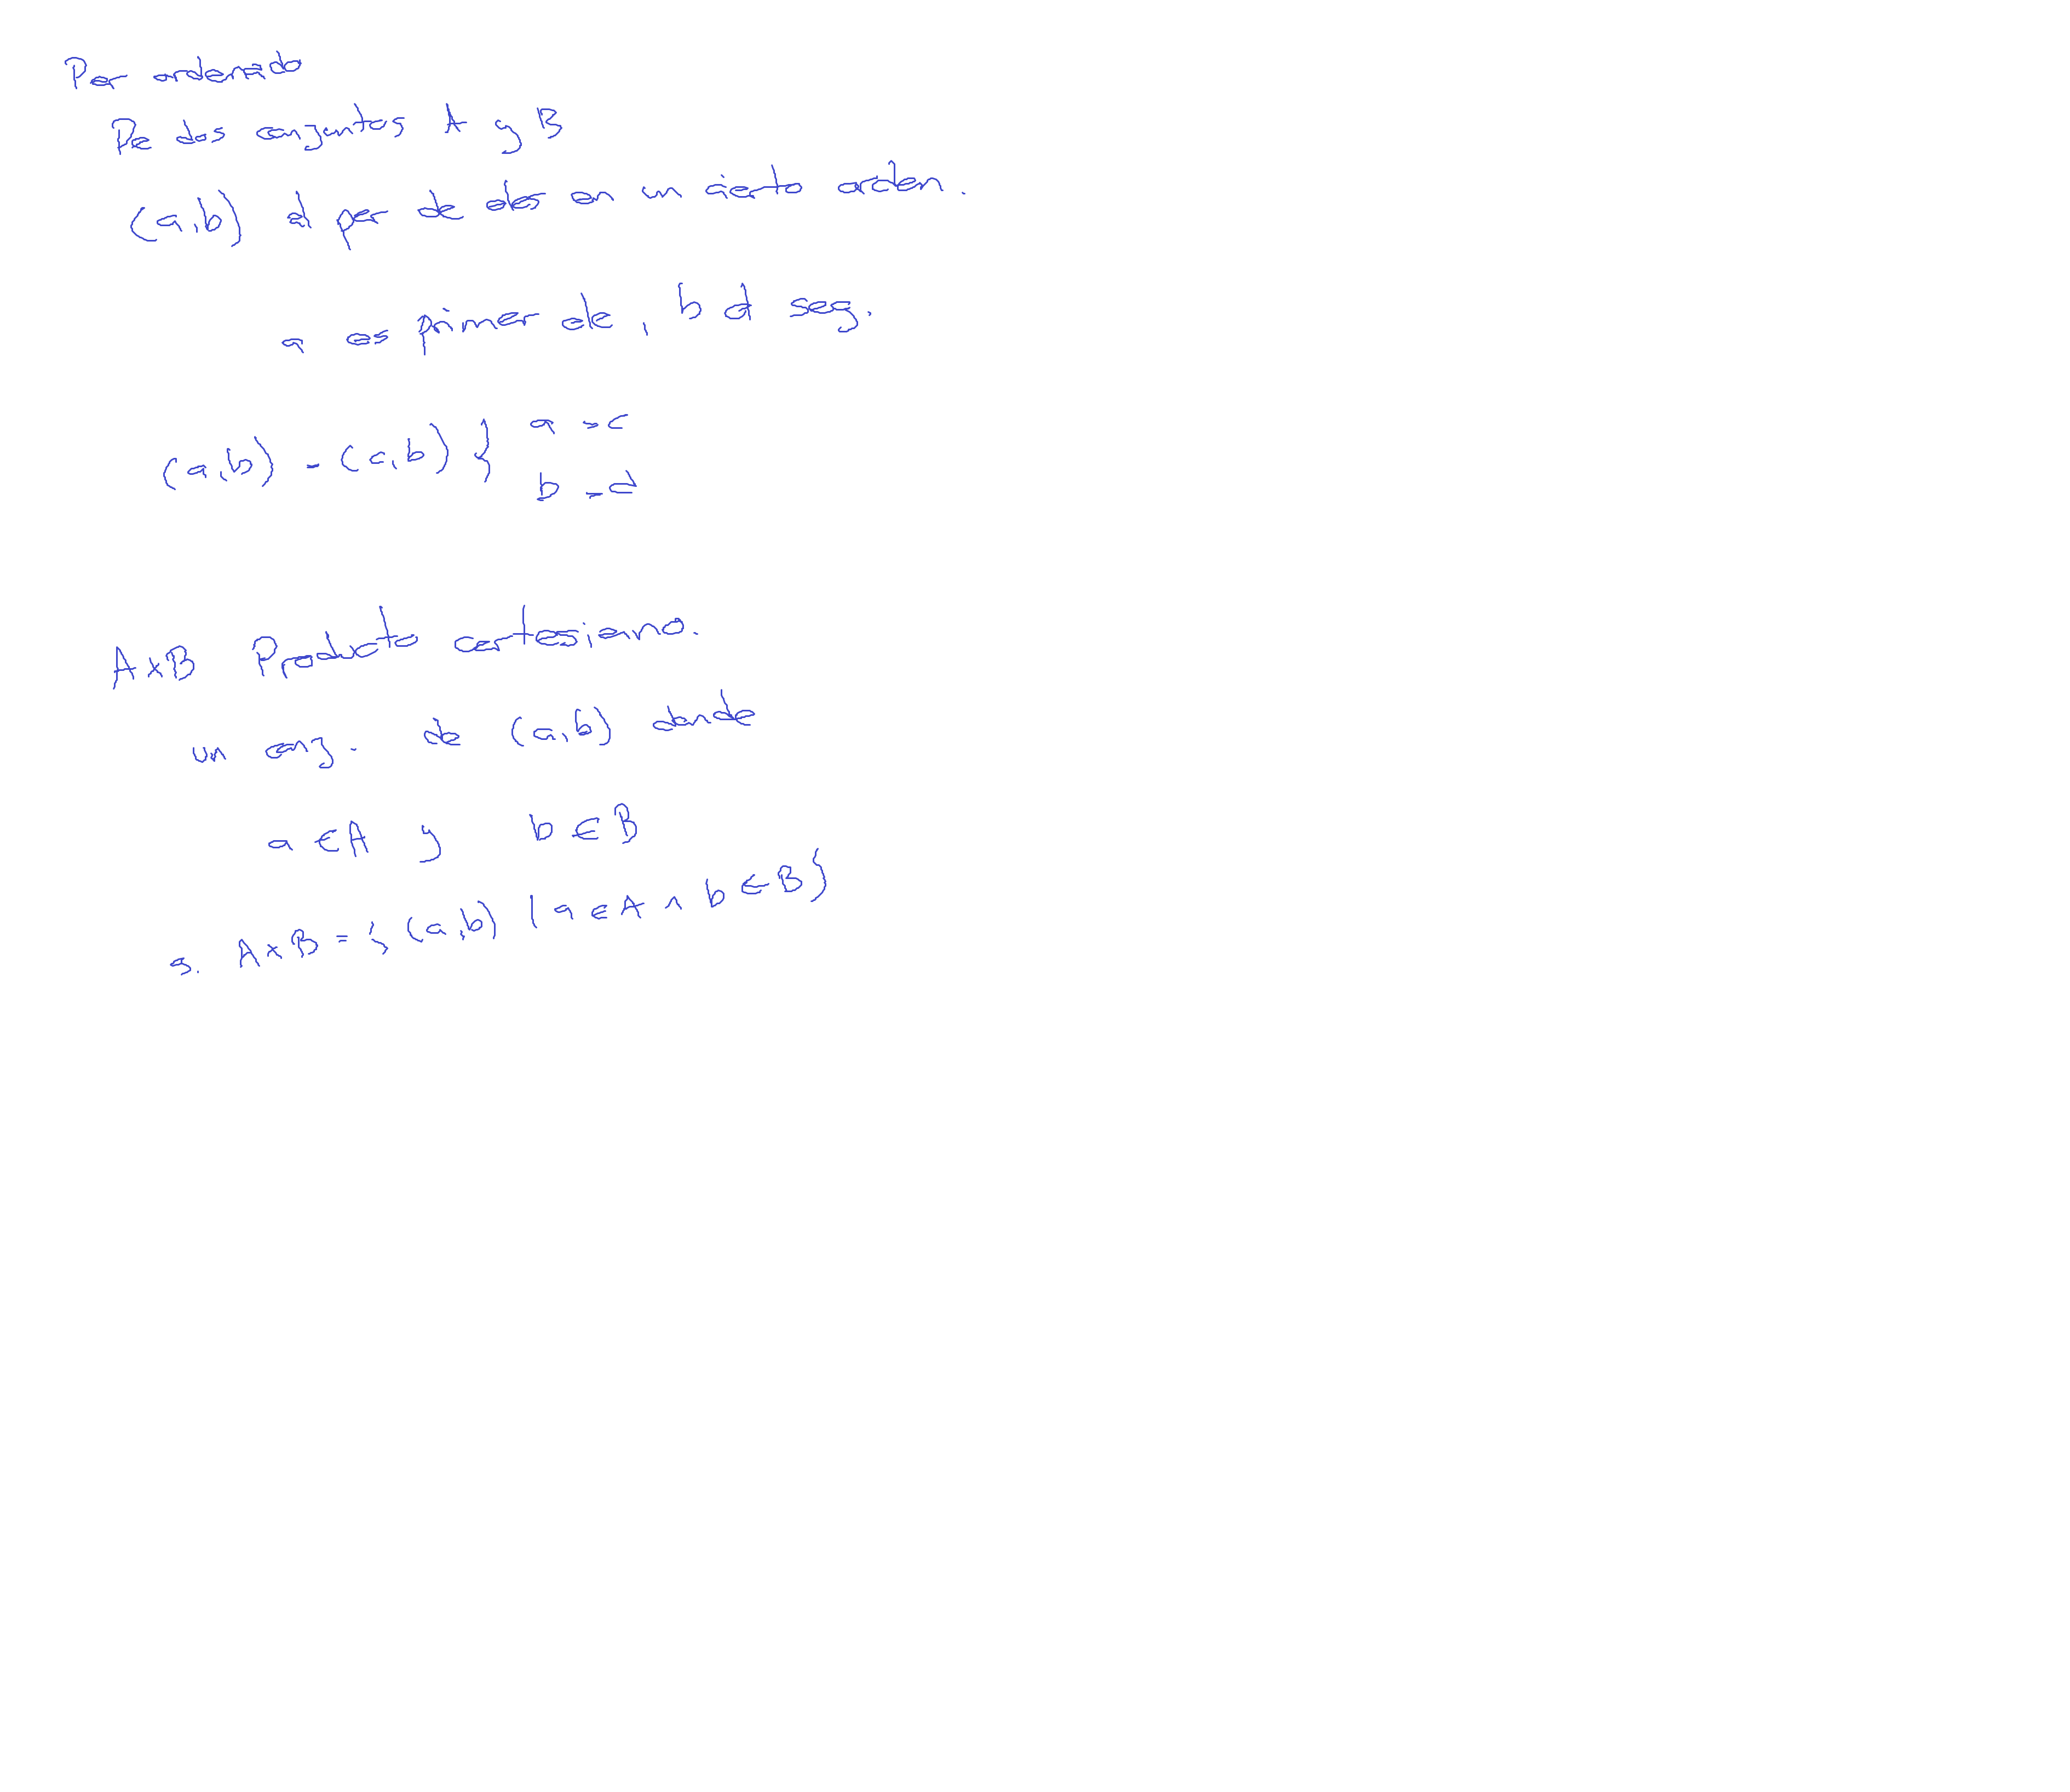 Par ordenado
De dos conjuntos A y B
(a,b) el par de ele en un cierto orden.
a es primer ele, b el seg.
(a,b) = (a,b) } a = c
b = d
A×B Producto cartesiano.
un conj. de (a,b) donde
a ∈ A y b ∈ B
s. A×B = { (a,b) | a ∈ A ∧ b ∈ B}